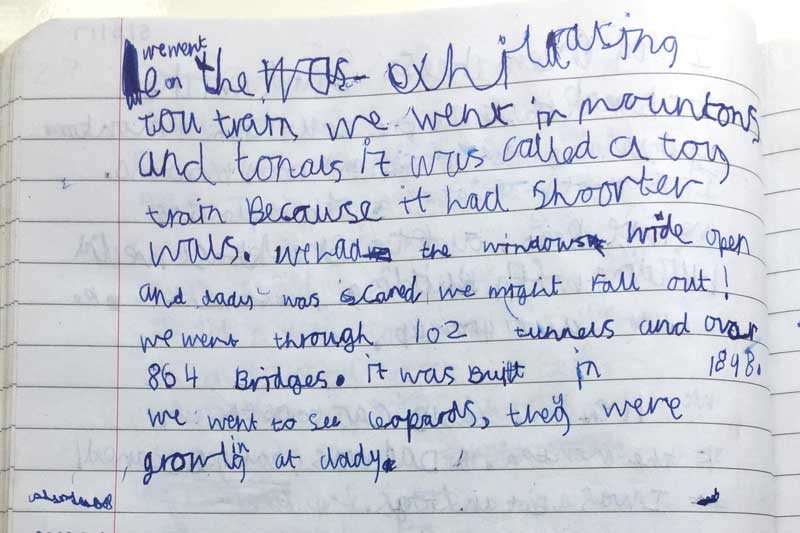 we went
on the was exhilarating
tou train, we went in mountons
and tonals it was called a toy
train Because it had Shoorter
wals. we had the windows wide open
and dady was scared we might fall out!
we went through 102 tunnels and over
864 Bridges. it was built in 1898.
we went to see leopards, they were
growling at dady.